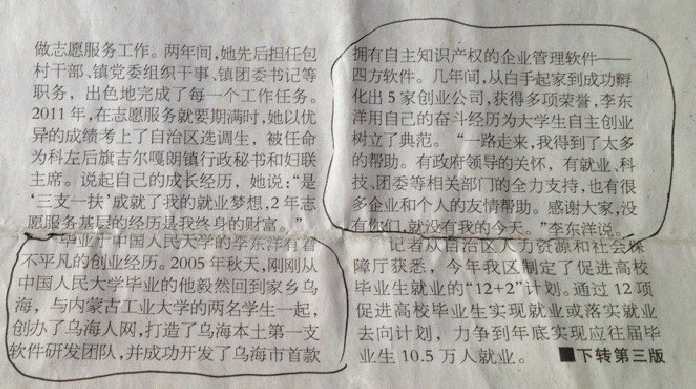 做志愿服务工作。两年间,她先后担任包
村干部、镇党委组织干事、镇团委书记等
职务，出色地完成了每一个工作任务。
2011年,在志愿服务就要期满时,她以优
异的成绩考上了自治区选调生，被任命
为科左后旗吉尔嘎朗镇行政秘书和妇联
主席。说起自己的成长经历，她说:“是
‘三支一扶’成就了我的就业梦想,2年志
愿服务基层的经历是我终身的财富。”
毕业于中国人民大学的李东洋有着
不平凡的创业经历。2005年秋天,刚刚从
中国人民大学毕业的他毅然回到家乡乌
海，与内蒙古工业大学的两名学生一起,
创办了乌海人网,打造了乌海本土第一支
软件研发团队,并成功开发了乌海市首款
拥有自主知识产权的企业管理软件——
四方软件。几年间,从白手起家到成功孵
化出5家创业公司,获得多项荣誉,李东
洋用自己的奋斗经历为大学生自主创业
树立了典范。“一路走来,我得到了太多
的帮助。有政府领导的关怀，有就业、科
技、团委等相关部门的全力支持,也有很
多企业和个人的友情帮助。感谢大家,没
有你们,就没有我的今天。”李东洋说。
记者从自治区人力资源和社会保
障厅获悉，今年我区制定了促进高校
毕业生就业的“12+2”计划。通过12项
促进高校毕业生实现就业或落实就业
去向计划，力争到年底实现应往届毕
业生10.5万人就业。 ■下转第三版